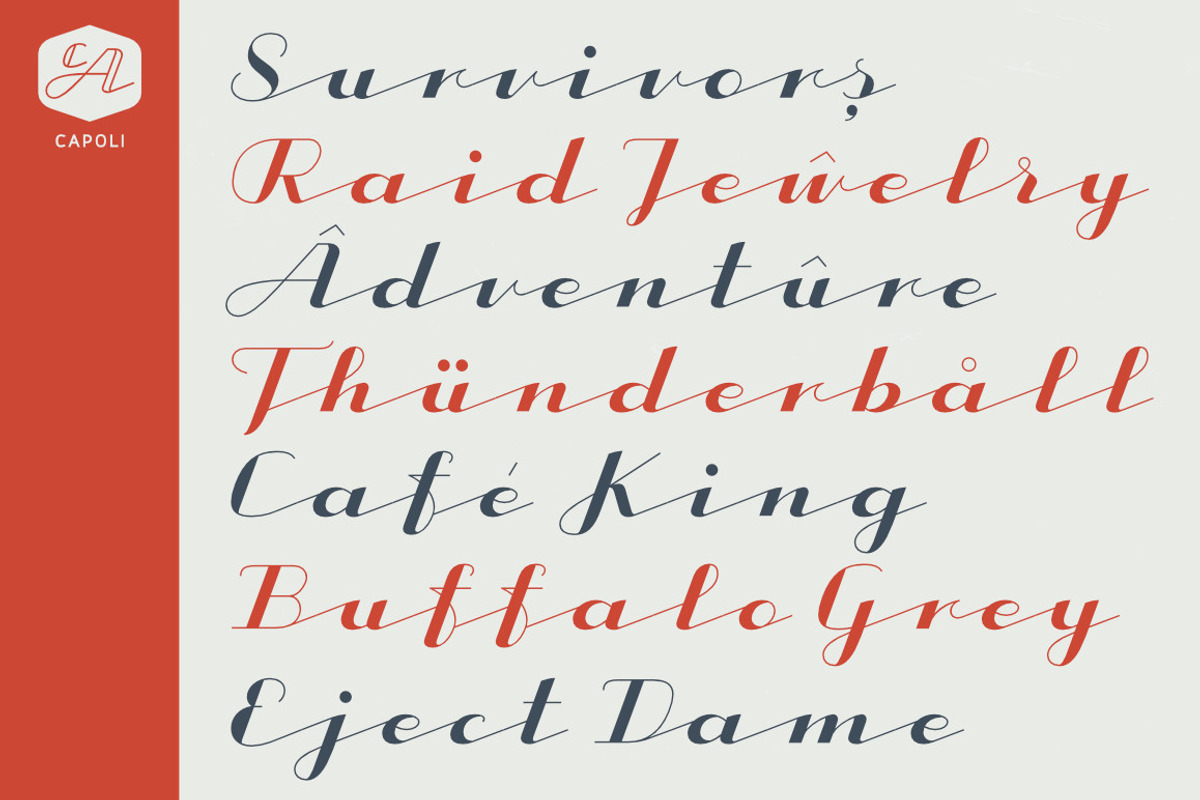 CA
CAPOLI
Survivorș
Raid Jeŵelry
Âdventûre
Thünderbåll
Café King
Buffalo Grey
Eject Dame